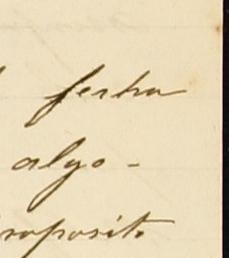 fecha
algo -
roposito